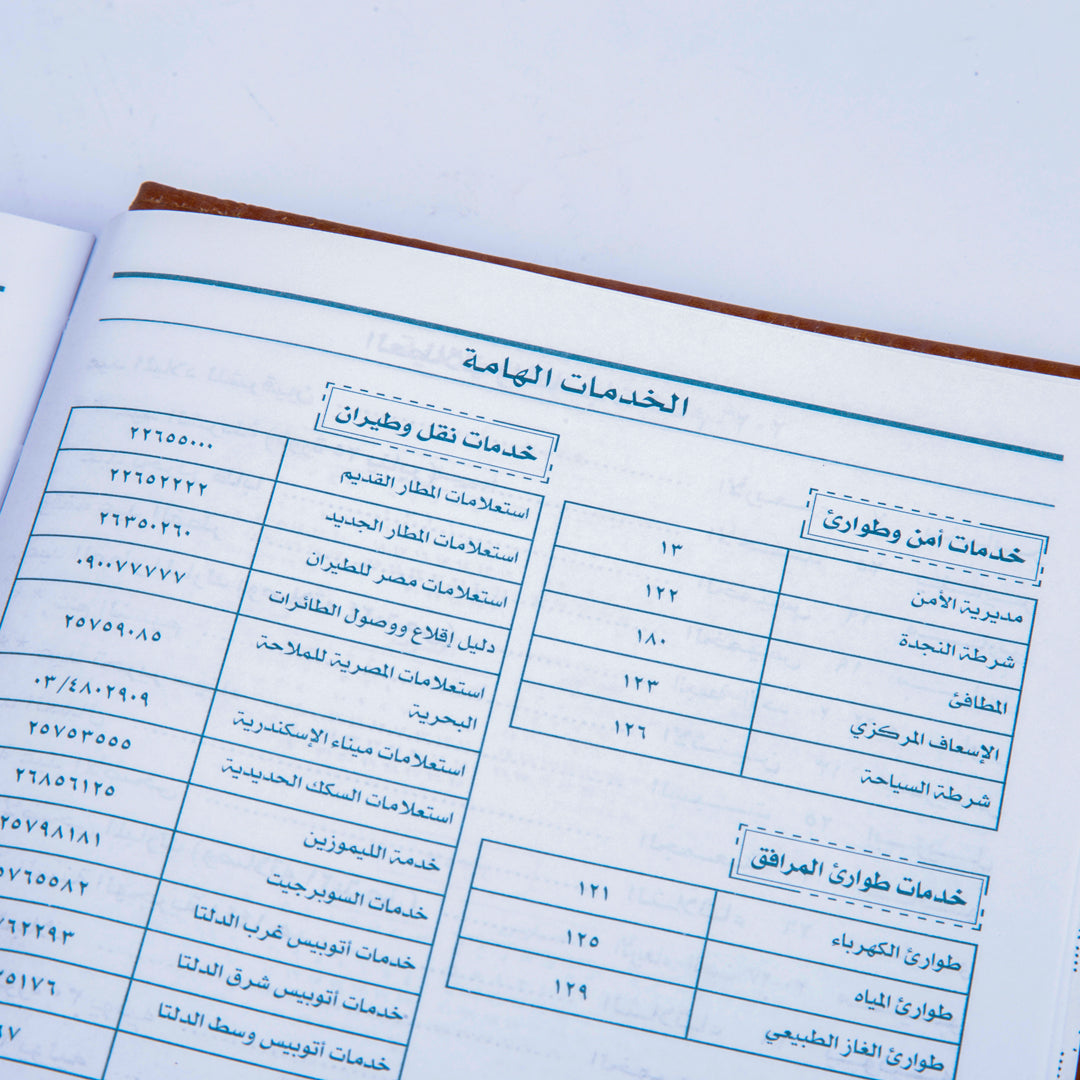 الخدمات الهامة
خدمات أمن وطوارئ
مديرية الأمن ١٣
شرطة النجدة ١٢٢
المطافئ ١٨٠
الإسعاف المركزي ١٢٣
شرطة السياحة ١٢٦
خدمات طوارئ المرافق
طوارئ الكهرباء ١٢١
طوارئ المياه ١٢٥
طوارئ الغاز الطبيعي ١٢٩
خدمات نقل وطيران
استعلامات المطار القديم ٢٢٦٥٥٠٠٠
استعلامات المطار الجديد ٢٢٦٥٢٢٢٢
استعلامات مصر للطيران ٢٦٣٥٠٢٦٠
دليل إقلاع ووصول الطائرات ٠٩٠٠٧٧٧٧٧
استعلامات المصرية للملاحة ٢٥٧٥٩٠٨٥
البحرية
استعلامات ميناء الإسكندرية ٠٣/٤٨٠٢٩٠٩
استعلامات السكك الحديدية ٢٥٧٥٣٥٥٥
خدمة الليموزين ٢٦٨٥٦١٢٥
خدمات السوبرجيت ٢٥٧٩٨١٨١
خدمات أتوبيس غرب الدلتا ٥٧٦٥٥٨٢
خدمات أتوبيس شرق الدلتا ٧٦٢٢٩٣
خدمات أتوبيس وسط الدلتا ٢٥١٧٦